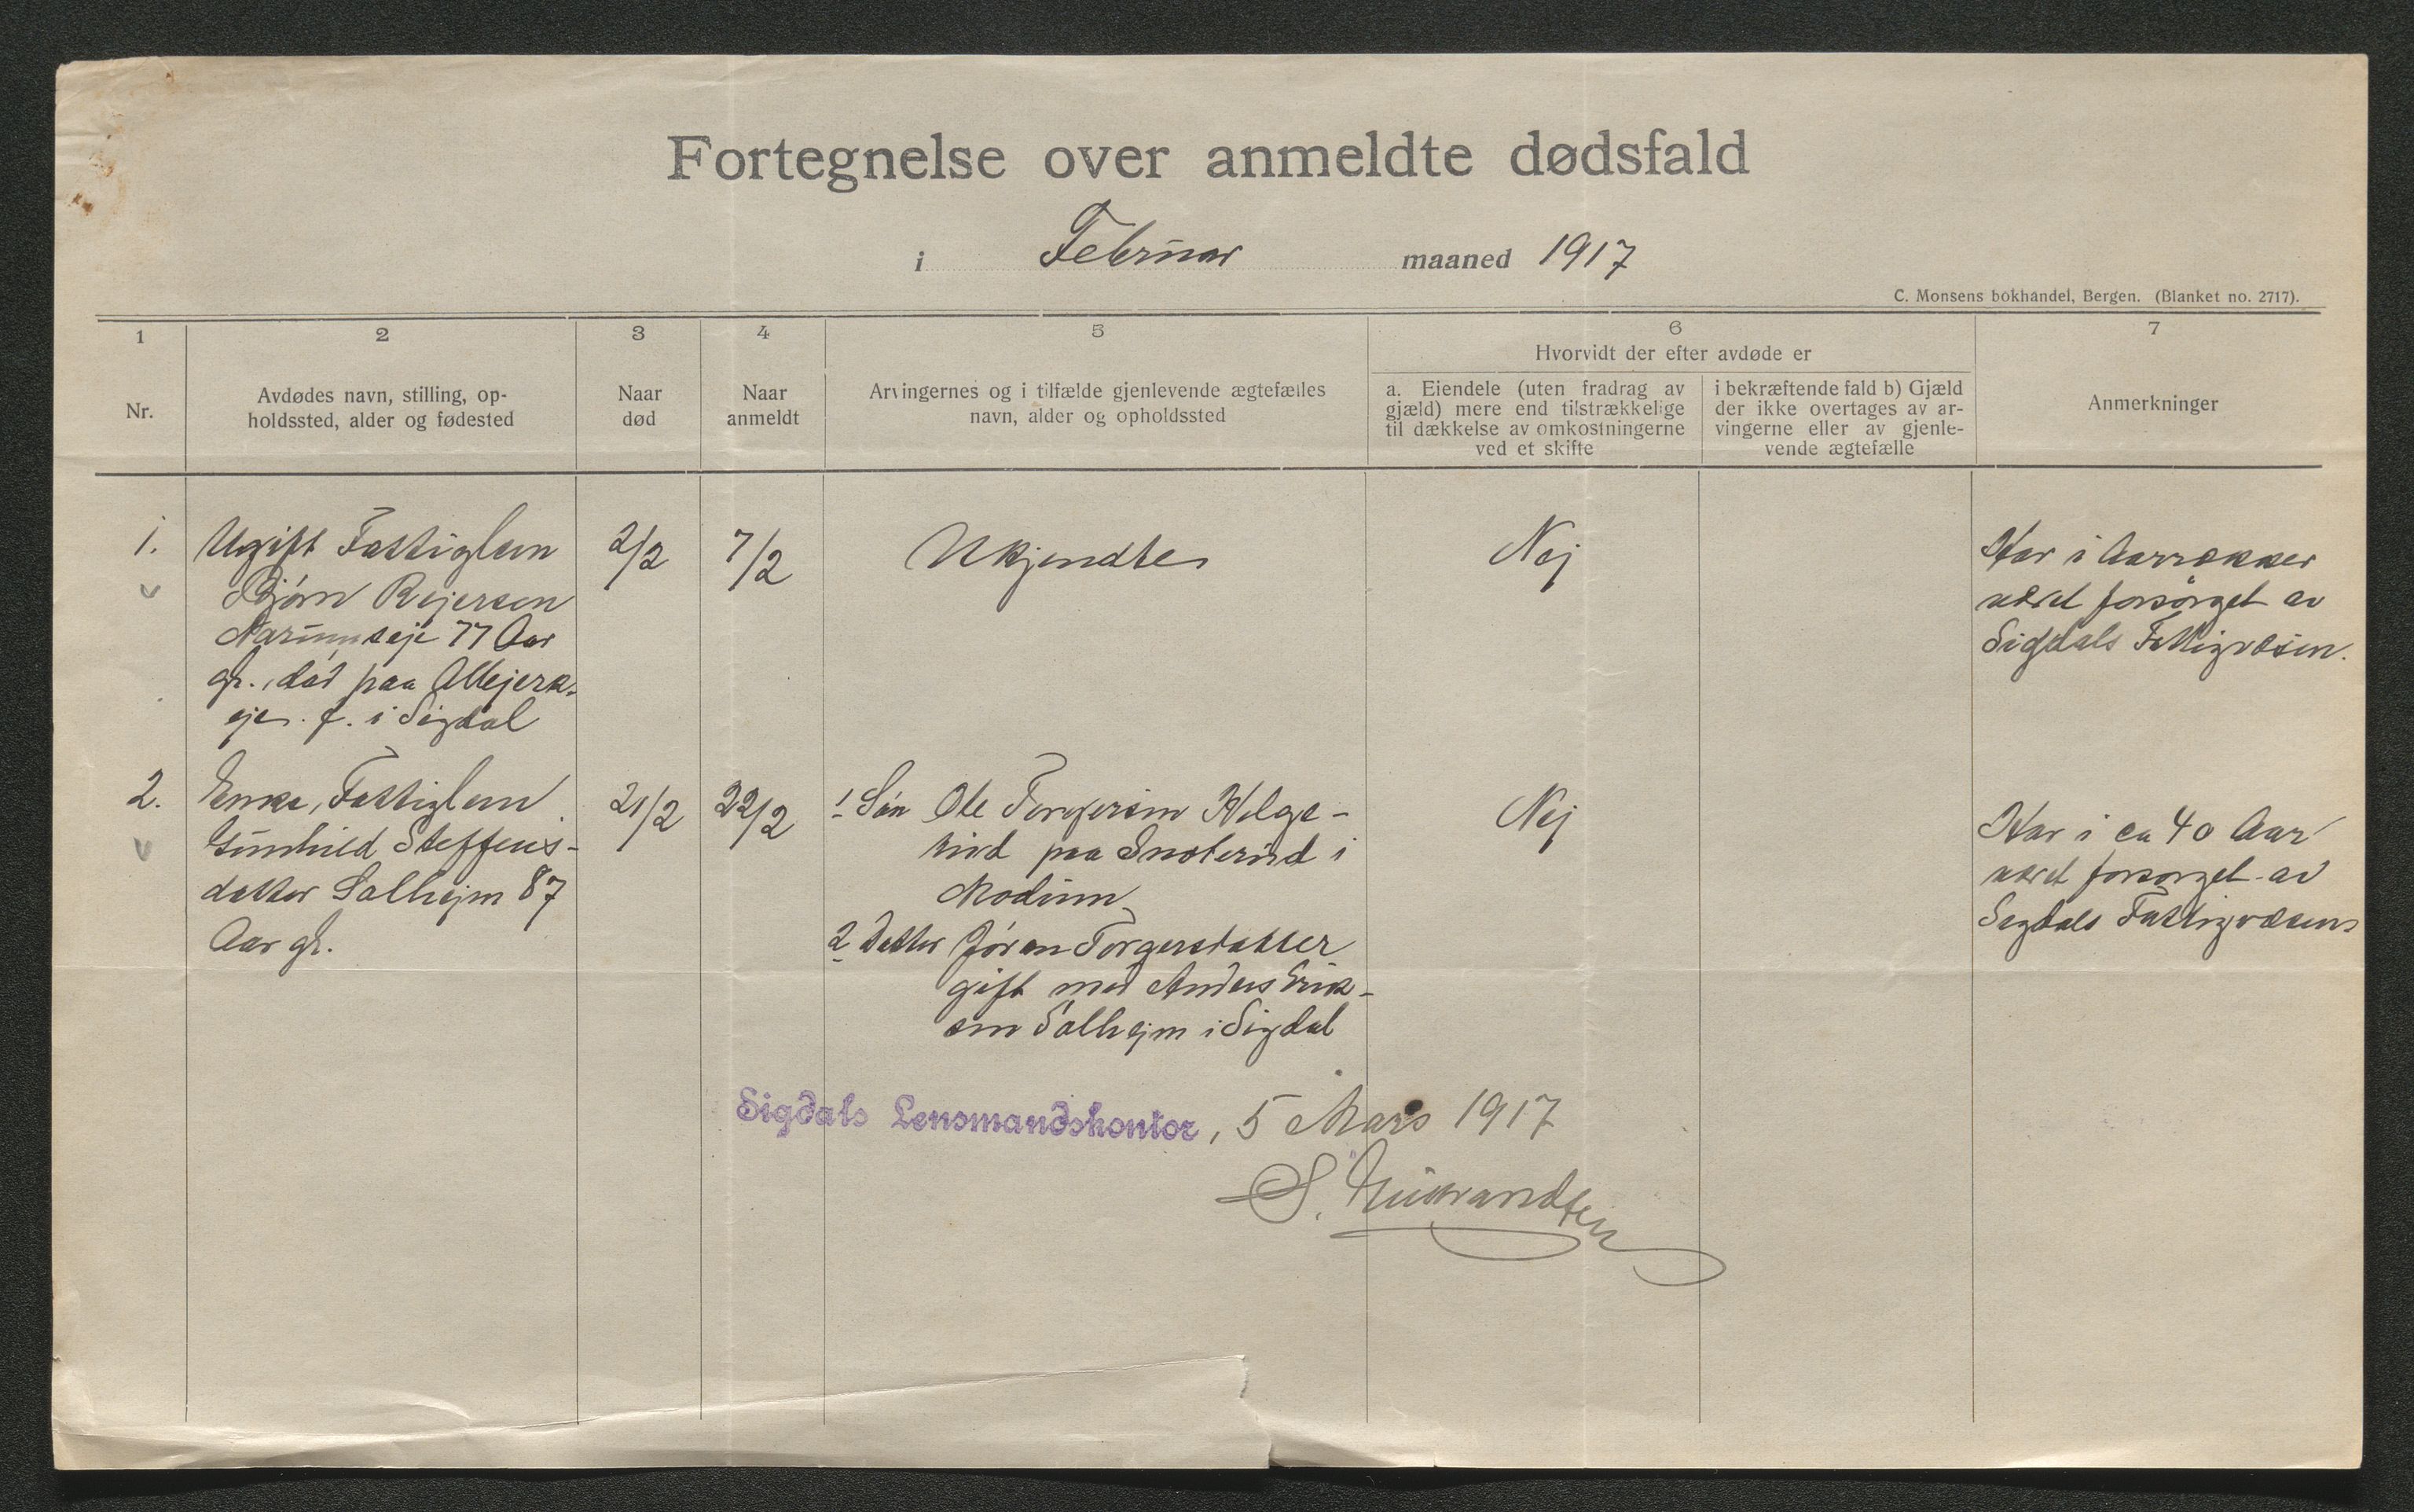 Fortegnelse over anmeldte dødsfald
i Februar maaned 1917
C. Monsens bokhandel, Bergen. (Blanket no. 2717).
1
2
3
4
5
6
7
Nr.
Avdødes navn, stilling, op-
holdssted, alder og fødested
Naar
død
Naar
anmeldt
Arvingernes og i tilfælde gjenlevende ægtefælles
navn, alder og opholdssted
Hvorvidt der efter avdøde er
a. Eiendele (uten fradrag av
gjæld) mere end tilstrækkelige
til dækkelse av omkostningerne
ved et skifte
i bekræftende fald b) Gjæld
der ikke overtages av ar-
vingerne eller av gjenle-
vende ægtefælle
Anmerkninger
1.
Ugift Fattiglem
Bjørn Rejersen
77 Aar
gl., død paa
eje. f. i Sigdal
2/2
7/2
Ukjendte
Nej
Har i Aarrækker
været forsørget av
Sigdals Fattigvæsen.
2.
Enke, Fattiglem
Gunhild Steffens-
datter Solhejm 87
Aar gl.
21/2
22/2
1 Søn Ole Torgersen Helge-
rud paa Snarerud i
Modum
2 Datter Jøran Torgersdatter
gift med Anders Erik-
sen Solhejm i Sigdal
Nej
Har i ca 40 Aar
været forsørget av
Sigdals Fattigvæsen
Sigdals Lensmandskontor, 5 Mars 1917
S.